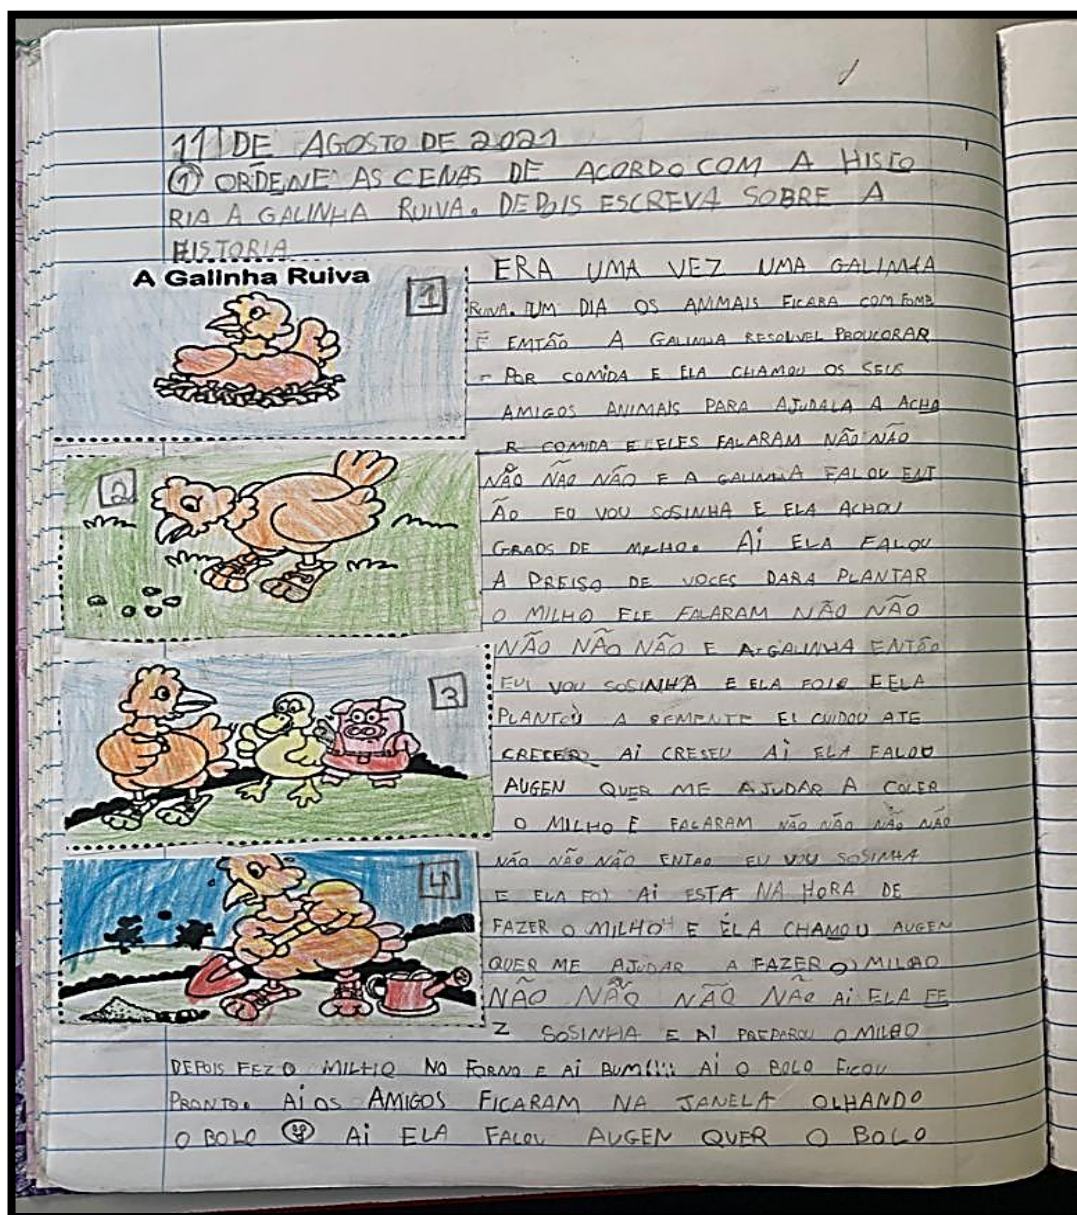 11 DE AGOSTO DE 2021
① ORDENE AS CENAS DE ACORDO COM A HISTO
RIA A GALINHA RUIVA. DEPOIS ESCREVA SOBRE A
HISTORIA
A Galinha Ruiva
1
2
3
4
ERA UMA VEZ UMA GALINHA
RUIVA. UM DIA OS ANIMAIS FICARA COM FOME
E EMTÃO A GALINHA RESOUVEL PROUCORAR
POR COMIDA E ELA CHAMOU OS SEUS
AMIGOS ANIMAIS PARA AJUDALA A ACHA
R COMIDA E ELES FALARAM NÃO NÃO
NÃO NÃO NÃO E A GALINHA FALOU ENT
ÃO EO VOU SOSINHA E ELA ACHOU
GRAOS DE MILHO. AÍ ELA FALOU
A PREISO DE VOCES PARA PLANTAR
O MILHO ELE FALARAM NÃO NÃO
NÃO NÃO NÃO E A GALINHA ENTÃO
EUI VOU SOSINHA E ELA FOI E ELA
PLANTOU A SEMENTE EL CUIDOU ATE
CRECER AÍ CRESEU AÍ ELA FALOU
AUGEN QUER ME AJUDAR A COLER
O MILHO E FALARAM NÃO NÃO NÃO NÃO
NÃO NÃO NÃO ENTAO EU VOU SOSINHA
E ELA FOI AÍ ESTA NA HORA DE
FAZER O MILHO E ELA CHAMOU AUGEN
QUER ME AJUDAR A FAZER O MILHO
NÃO NÃO NÃO NÃO AÍ ELA FE
Z SOSINHA E AÍ PREPAROU O MILHO
DEPOIS FEZ O MILHO NO FORNO E AÍ BUM!!!! AÍ O BOLO FICOU
PRONTO. AÍ OS AMIGOS FICARAM NA JANELA OLHANDO
O BOLO AÍ ELA FALOU AUGEN QUER O BOLO